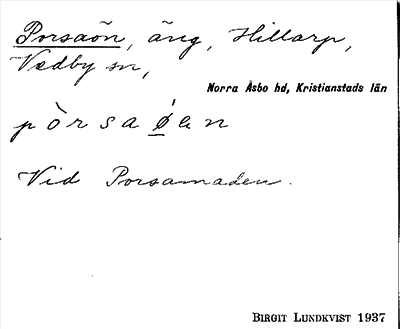 Porsaön, äng, Hillarp,
Vedby sn,
Norra Åsbo hd, Kristianstads län
pòrsaǿen
Vid Porsamaden.
BIRGIT LUNDKVIST 1937